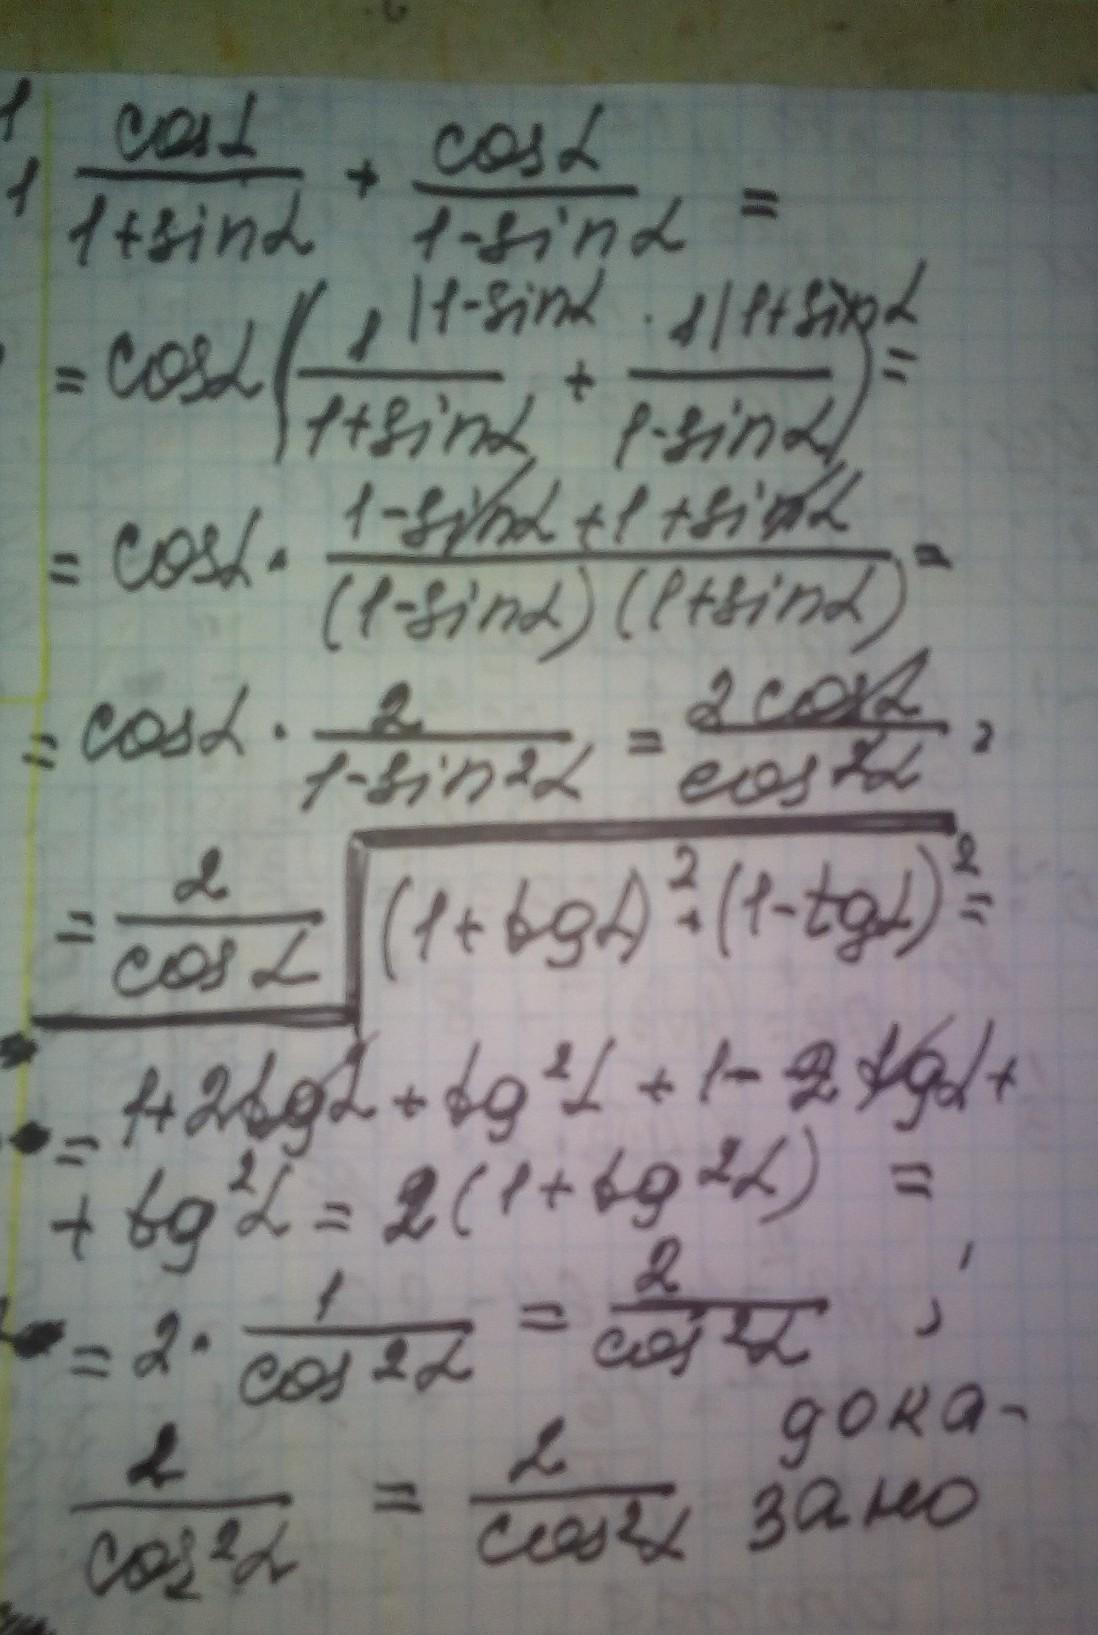 1
1 cosα/(1+sinα) + cosα/(1-sinα) =
= cosα(1|1-sinα/(1+sinα) + 1|1+sinα/(1-sinα)) =
= cosα · (1-sinα+1+sinα)/((1-sinα)(1+sinα)) =
= cosα · 2/(1-sin²α) = 2cosα/cos²α =
= 2/cosα (1+tgα)² + (1-tgα)² =
= 1+2tgα + tg²α + 1 - 2tgα +
+ tg²α = 2(1+tg²α) =
= 2 · 1/cos²α = 2/cos²α ;
2/cos²α = 2/cos²α дока-
зано